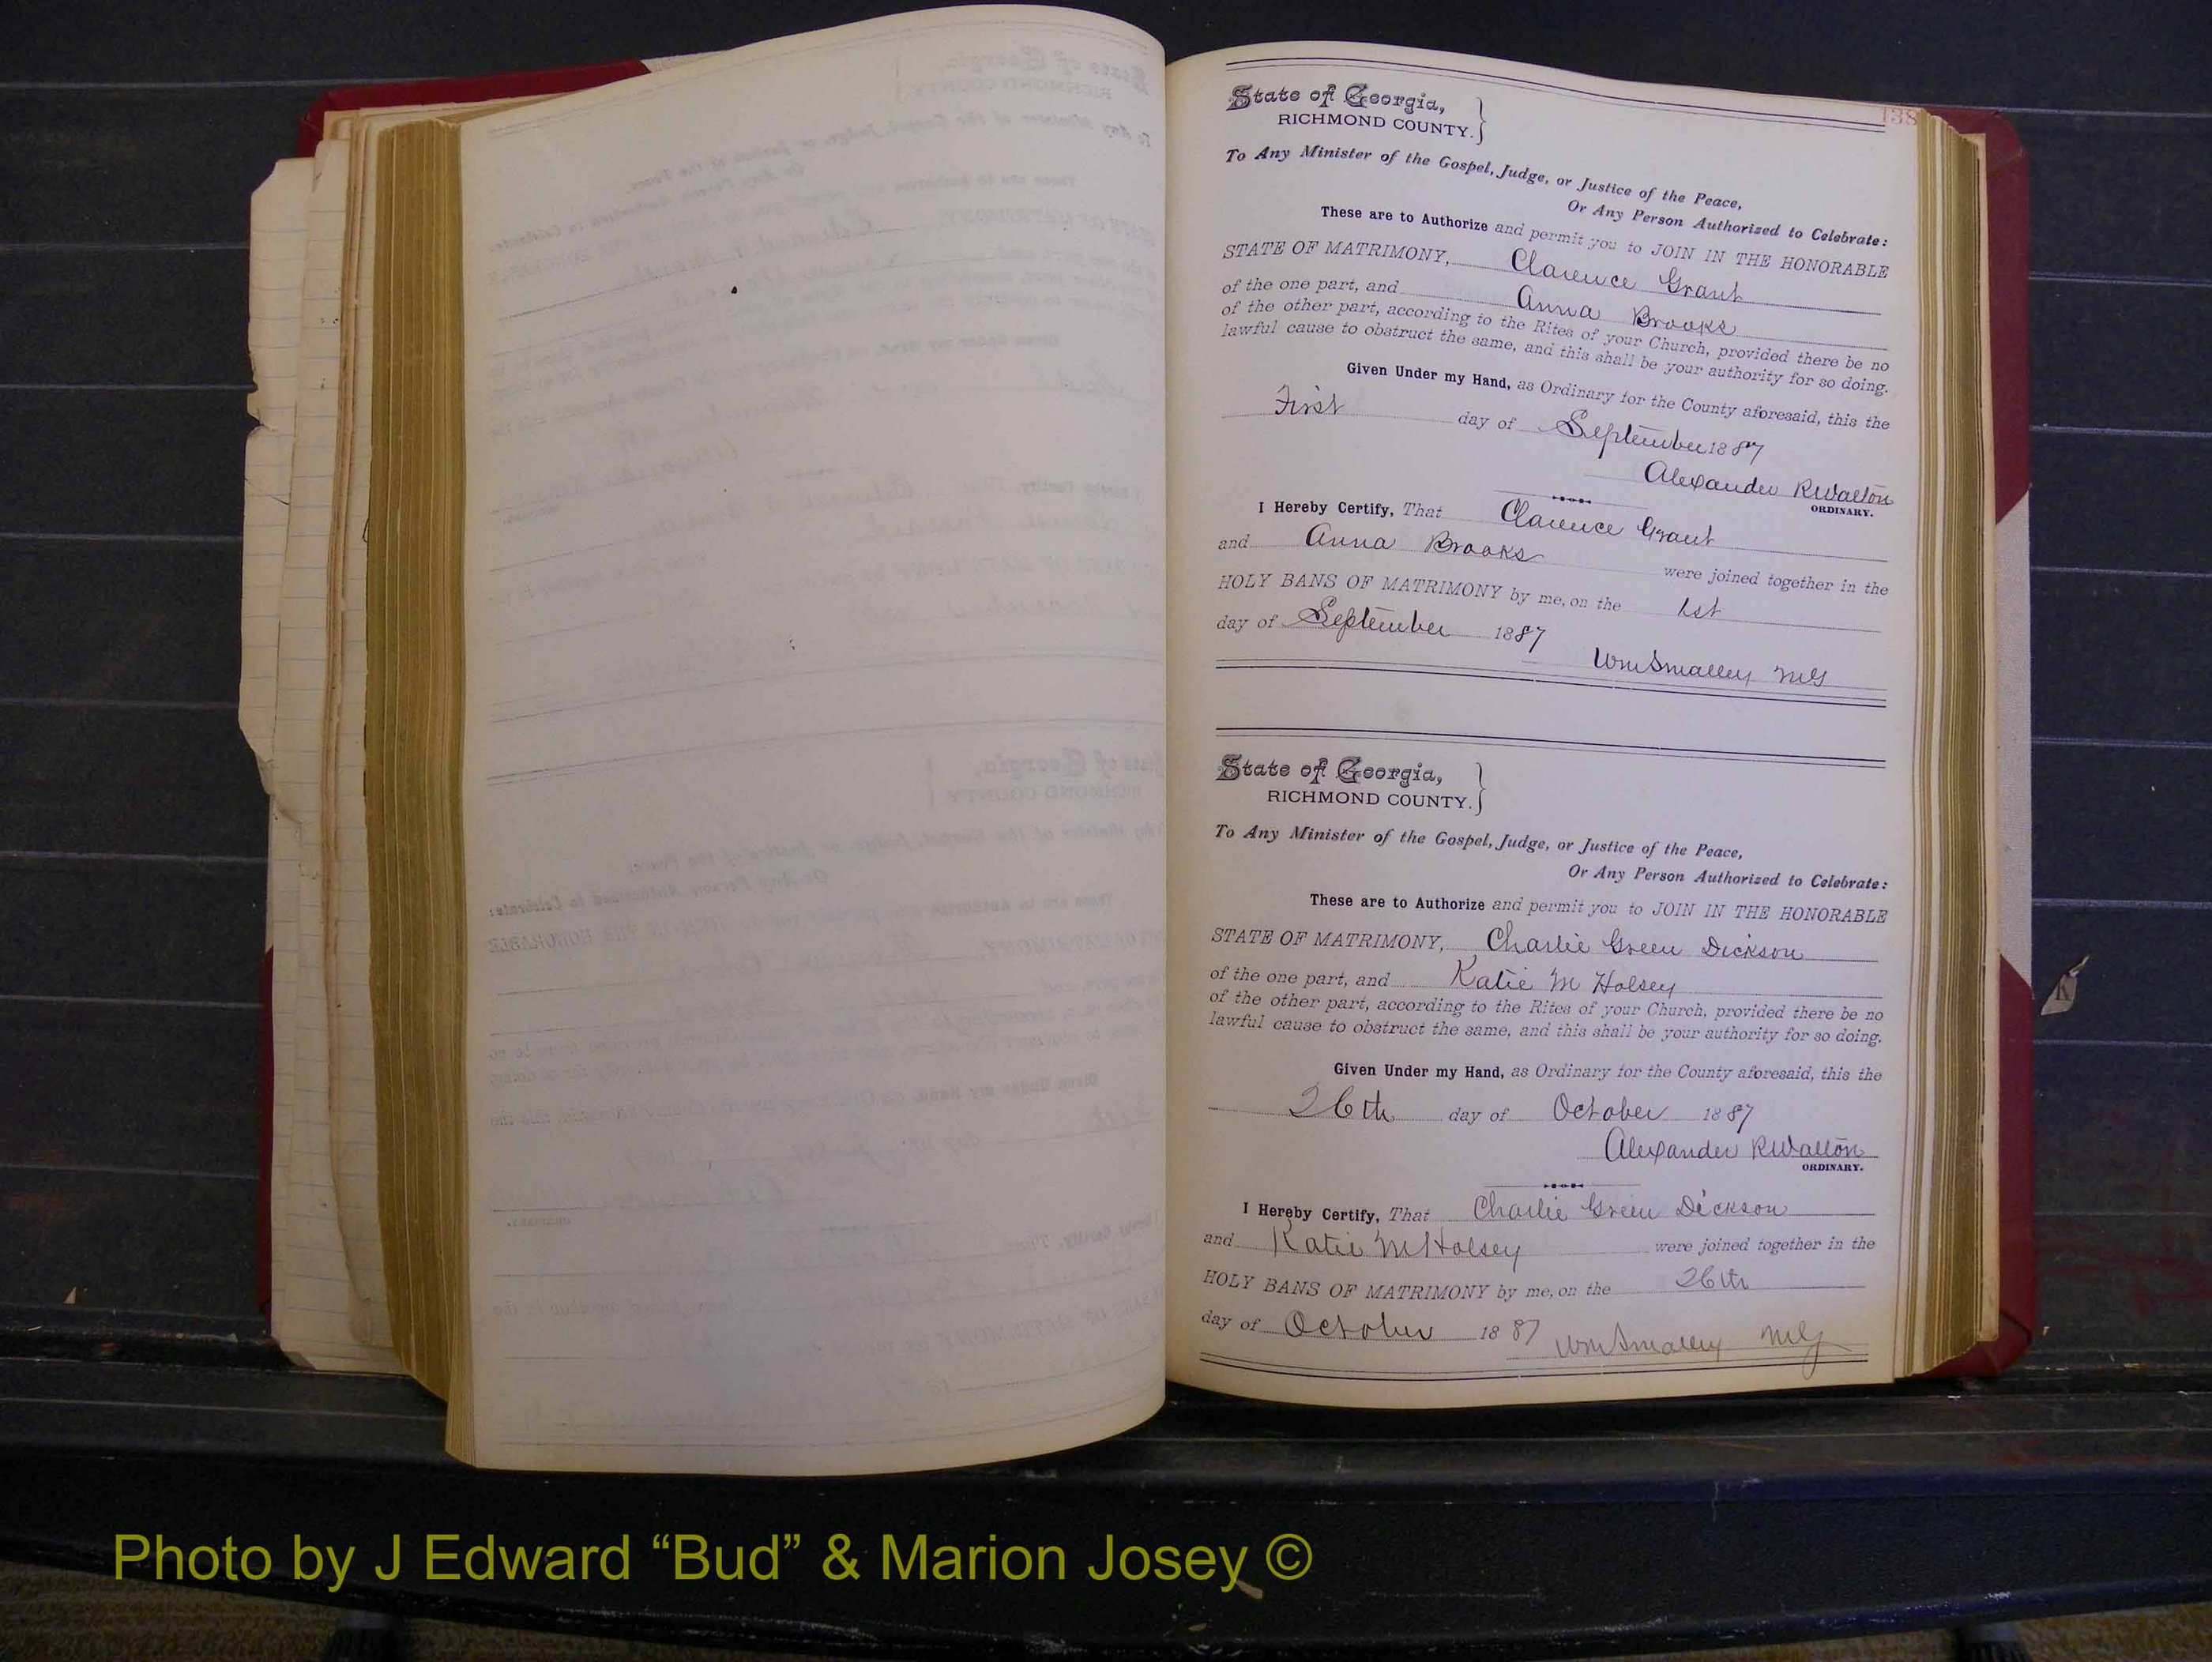 138
State of Georgia,
RICHMOND COUNTY. }
To Any Minister of the Gospel, Judge, or Justice of the Peace,
Or Any Person Authorized to Celebrate:
These are to Authorize and permit you to JOIN IN THE HONORABLE
STATE OF MATRIMONY, Clarence Grant
of the one part, and Anna Brooks
of the other part, according to the Rites of your Church, provided there be no
lawful cause to obstruct the same, and this shall be your authority for so doing.
Given Under my Hand, as Ordinary for the County aforesaid, this the
First day of September 1887
Alexander R Walton
ORDINARY.
I Hereby Certify, That Clarence Grant
and Anna Brooks were joined together in the
HOLY BANS OF MATRIMONY by me, on the 1st
day of September 1887
Wm Smalley MG
State of Georgia,
RICHMOND COUNTY. }
To Any Minister of the Gospel, Judge, or Justice of the Peace,
Or Any Person Authorized to Celebrate:
These are to Authorize and permit you to JOIN IN THE HONORABLE
STATE OF MATRIMONY, Charlie Green Dickson
of the one part, and Katie M Holsey
of the other part, according to the Rites of your Church, provided there be no
lawful cause to obstruct the same, and this shall be your authority for so doing.
Given Under my Hand, as Ordinary for the County aforesaid, this the
26th day of October 1887
Alexander R Walton
ORDINARY.
I Hereby Certify, That Charlie Green Dickson
and Katie M Holsey were joined together in the
HOLY BANS OF MATRIMONY by me, on the 26th
day of October 1887 Wm Smalley MG
Photo by J Edward “Bud” & Marion Josey ©